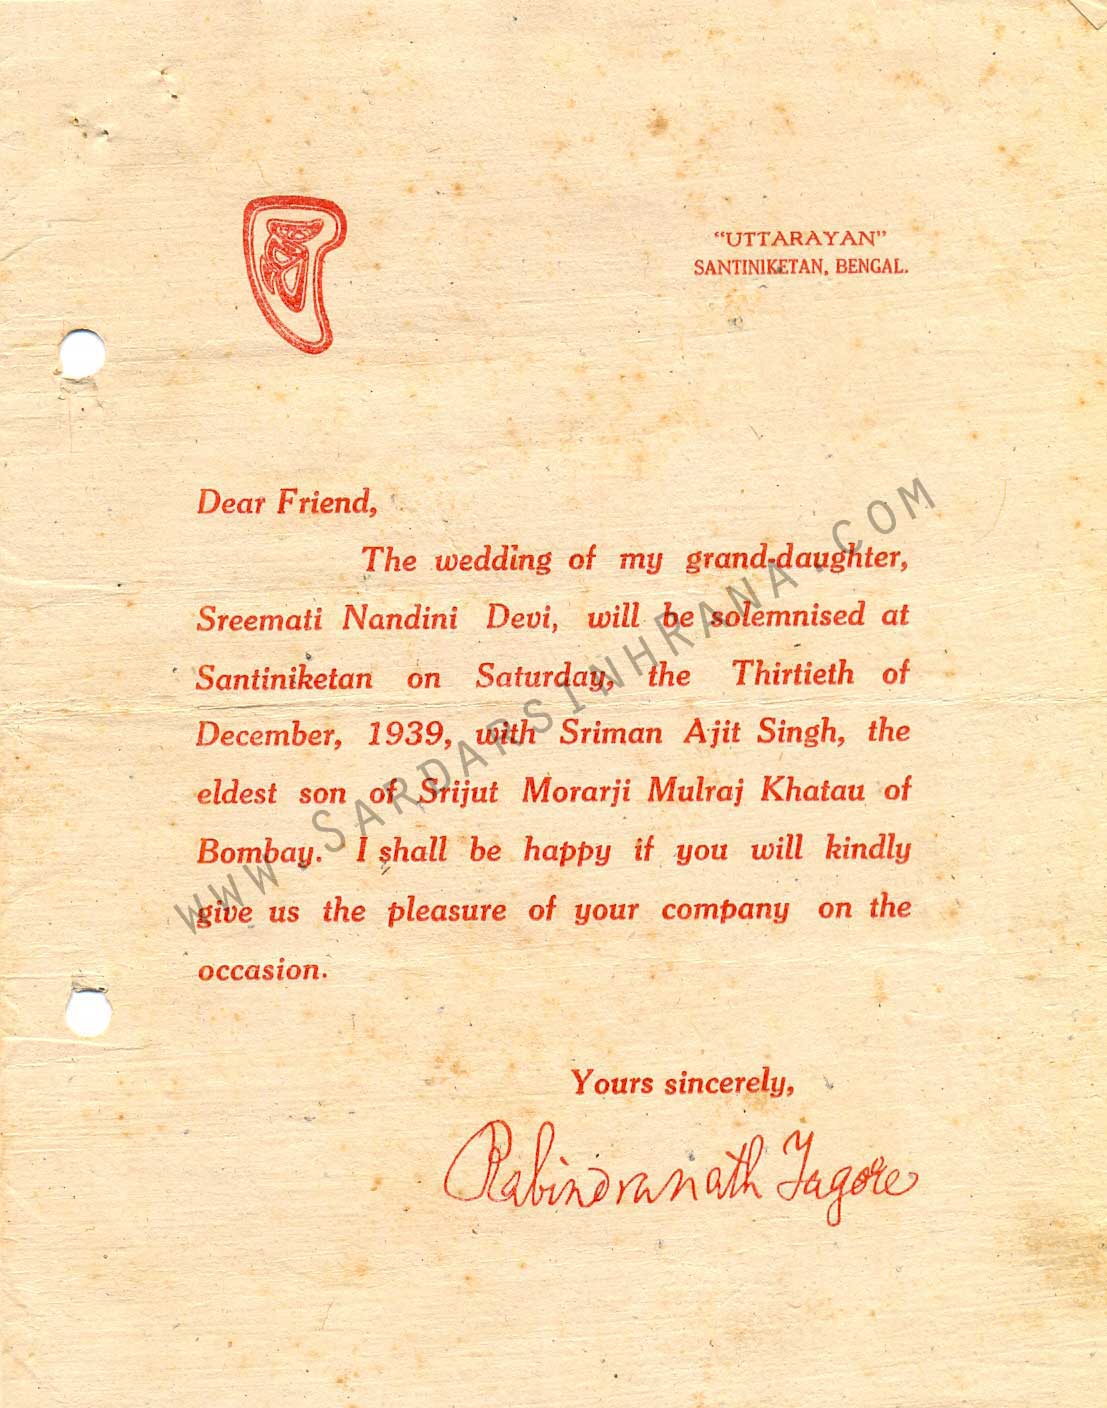 "UTTARAYAN"
SANTINIKETAN, BENGAL.
Dear Friend,
The wedding of my grand-daughter,
Sreemati Nandini Devi, will be solemnised at
Santiniketan on Saturday, the Thirtieth of
December, 1939, with Sriman Ajit Singh, the
eldest son of Srijut Morarji Mulraj Khatau of
Bombay. I shall be happy if you will kindly
give us the pleasure of your company on the
occasion.
Yours sincerely,
Rabindranath Tagore
WWW.SARDARSINHRANA.COM